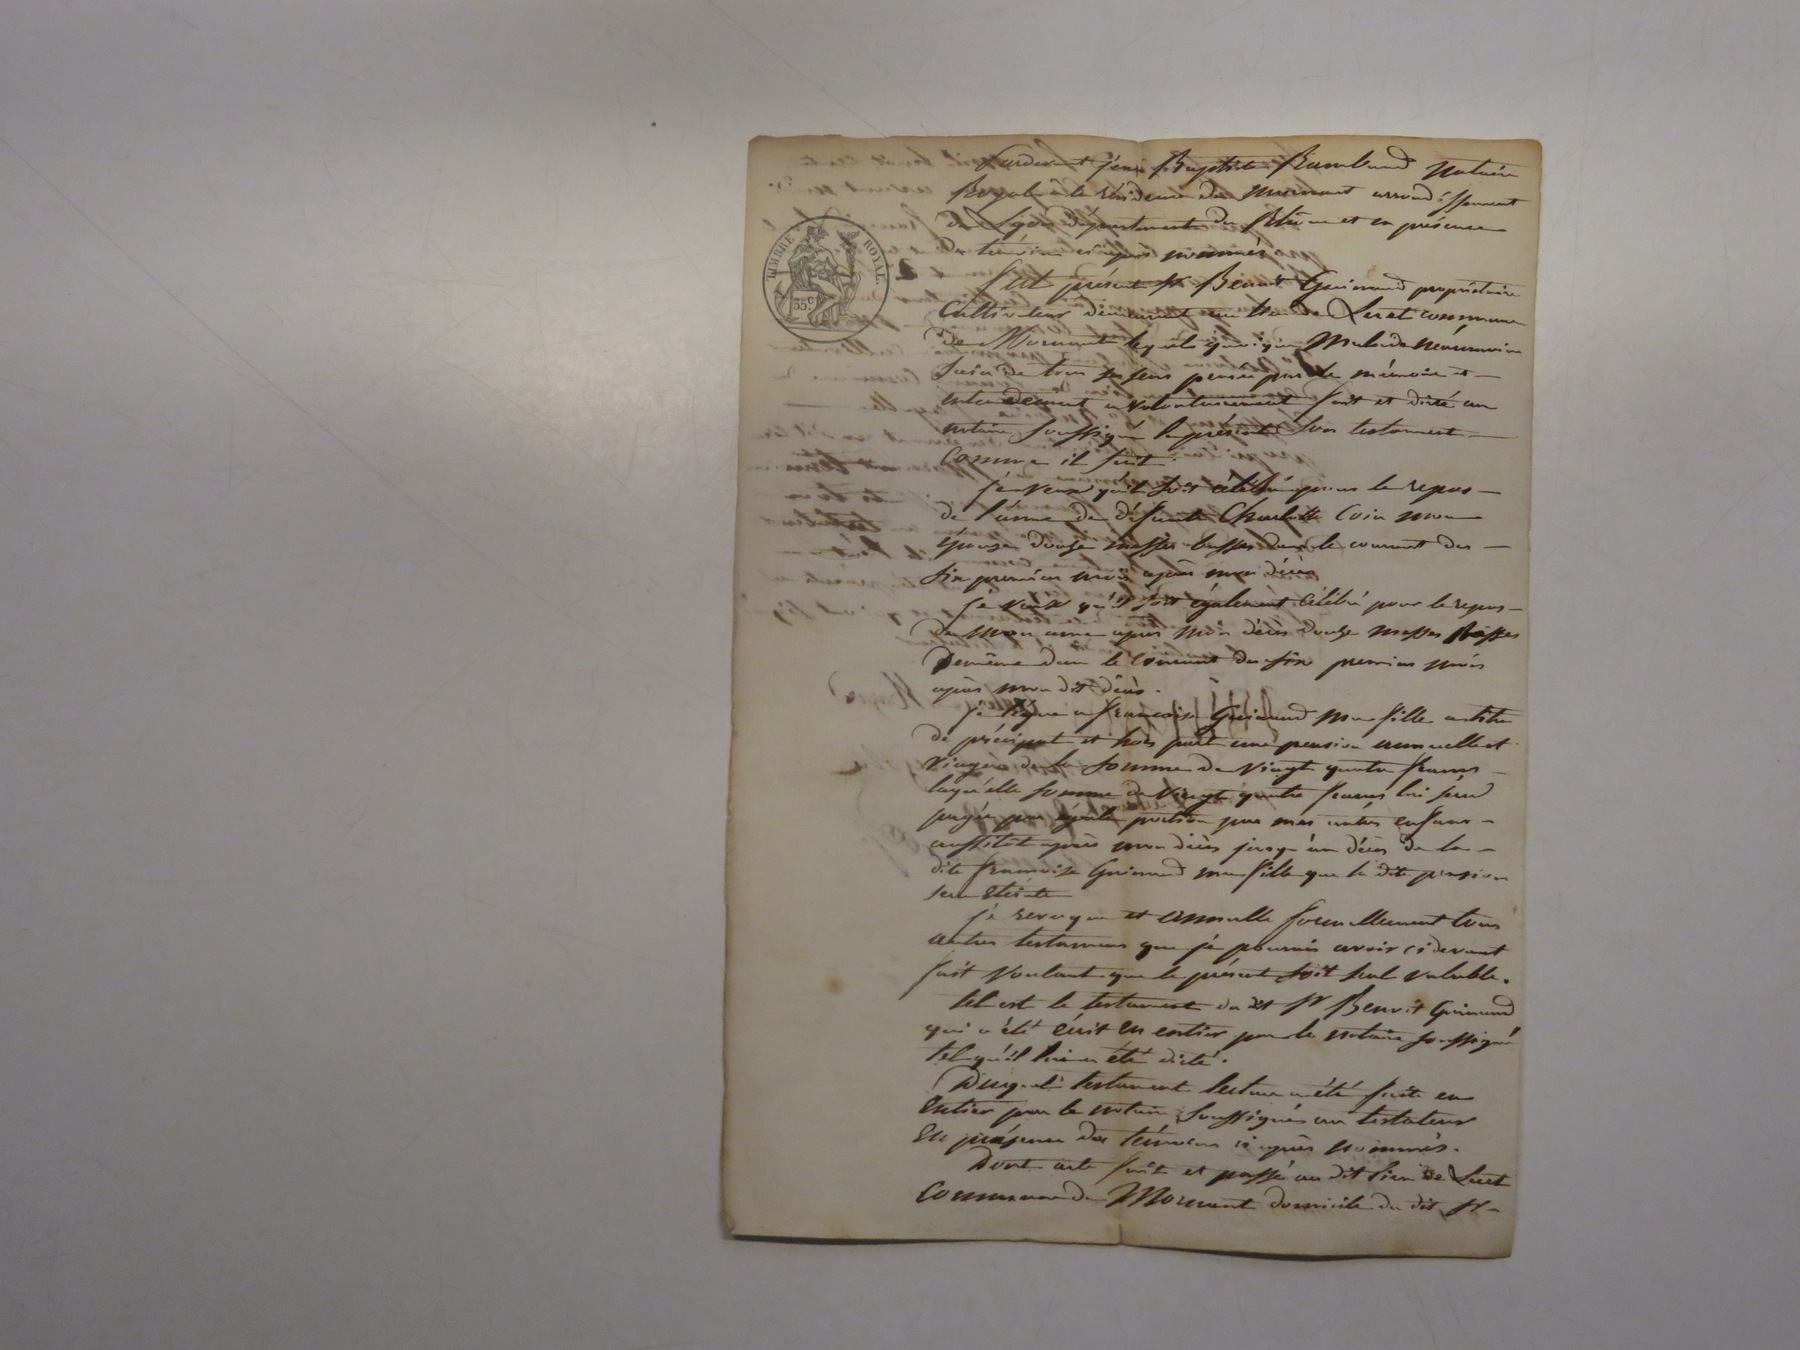 TIMBRE ROYAL
35 c
Pardevant jean Baptiste Rambaud notaire
Royal à la résidence de Mornant arrondissement
de Lyon département du Rhône et en présence
des témoins ci après nommés
fut présent Sr Benoit Guinand propriétaire
Cultivateur demeurant au lieu de commune
de Mornant lequel quoique Malade néanmoins
Sain de tous ses sens pensée parole mémoire et
entendement a volontairement fait et dicté au
notaire soussigné le présent Son testament
Comme il suit.
je veux qu'il soit célébré pour le repos
de l'âme de défunte Charlotte Coin mon
épouse douze messes basses dans le courant des
six premiers mois après mon décès
je veux qu'il soit également célébré pour le repos
de mon ame apres mon décès douze messes basses
demême dans le Courant des six premiers mois
après mon dit décès.
je légue a francoise Guinand ma fille a titre
de préciput et hors part une pension annuelle et
viagère de la somme de vingt quatre francs
laquelle somme de vingt quatre francs lui sera
payée par égale portion par mes autres enfans
aussitôt après mon décès jusqu'au décès de la
dite francoise Guinand ma fille que la dite pension
sera éteinte
je revoque et annulle formellement tous
autres testamens que je pourrais avoir ci devant
fait voulant que le présent soit seul valable.
tel est le testament du dt Sr Benoit Guinand
qui a été écrit en entier par le notaire soussigné
tel qu'il lui a été dicté.
Duquel testament lecture a été faite en
Entier par le notaire soussigné au testateur
En présence des témoins ci après nommés.
Dont acte fait et passé au dit lieu de
Commune de Mornant domicile du dit Sr